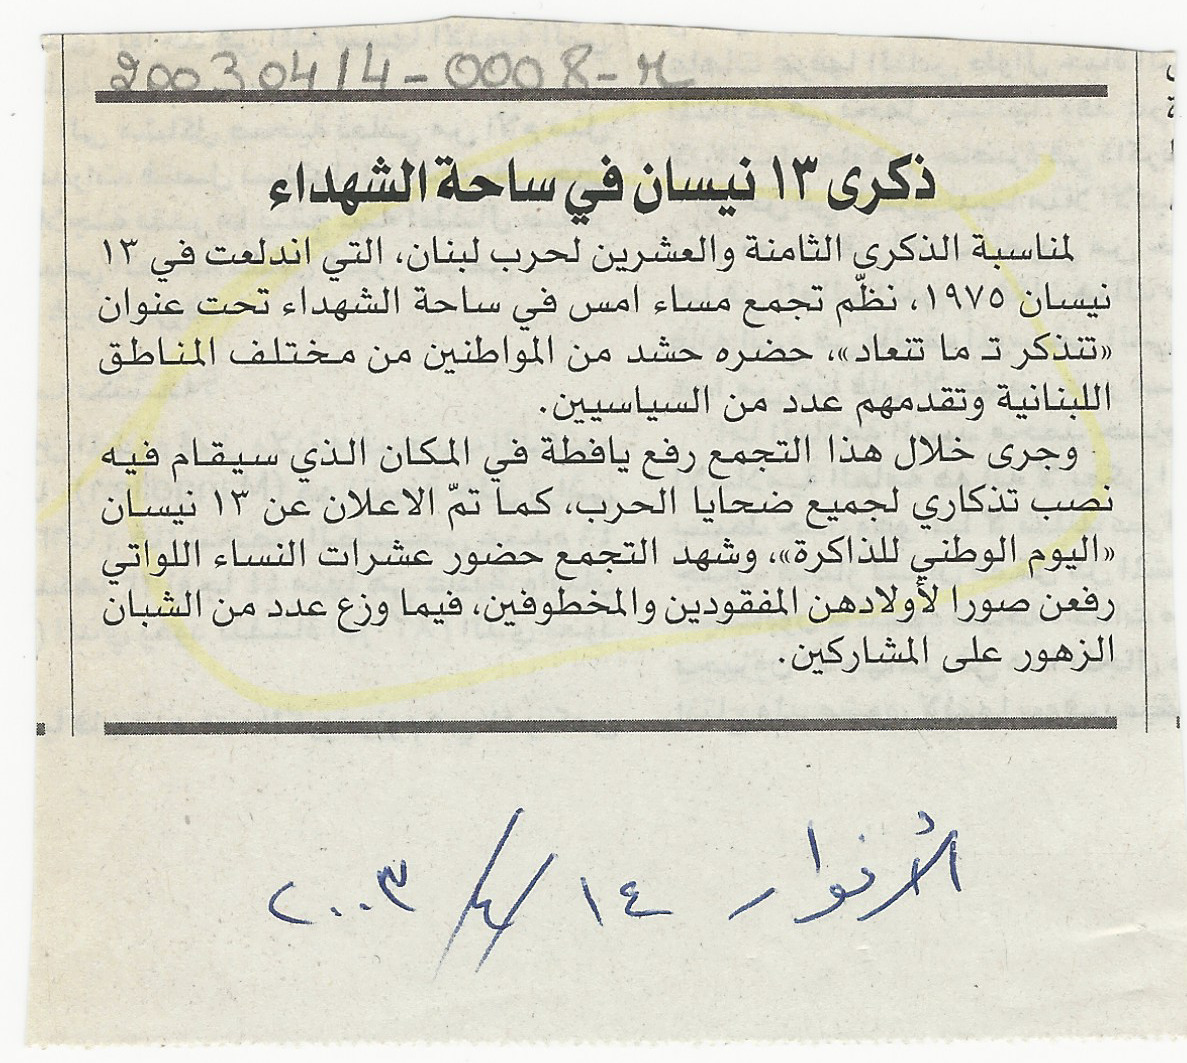 20030414-0008-M
ذكرى ١٣ نيسان في ساحة الشهداء
لمناسبة الذكرى الثامنة والعشرين لحرب لبنان، التي اندلعت في ١٣
نيسان ١٩٧٥، نظّم تجمع مساء امس في ساحة الشهداء تحت عنوان
«تنذكر تـ ما تنعاد»، حضره حشد من المواطنين من مختلف المناطق
اللبنانية وتقدمهم عدد من السياسيين.
وجرى خلال هذا التجمع رفع يافطة في المكان الذي سيقام فيه
نصب تذكاري لجميع ضحايا الحرب، كما تمّ الاعلان عن ١٣ نيسان
«اليوم الوطني للذاكرة»، وشهد التجمع حضور عشرات النساء اللواتي
رفعن صورا لأولادهن المفقودين والمخطوفين، فيما وزع عدد من الشبان
الزهور على المشاركين.
الأنوار - ١٤ / ٤ / ٢٠٠٣